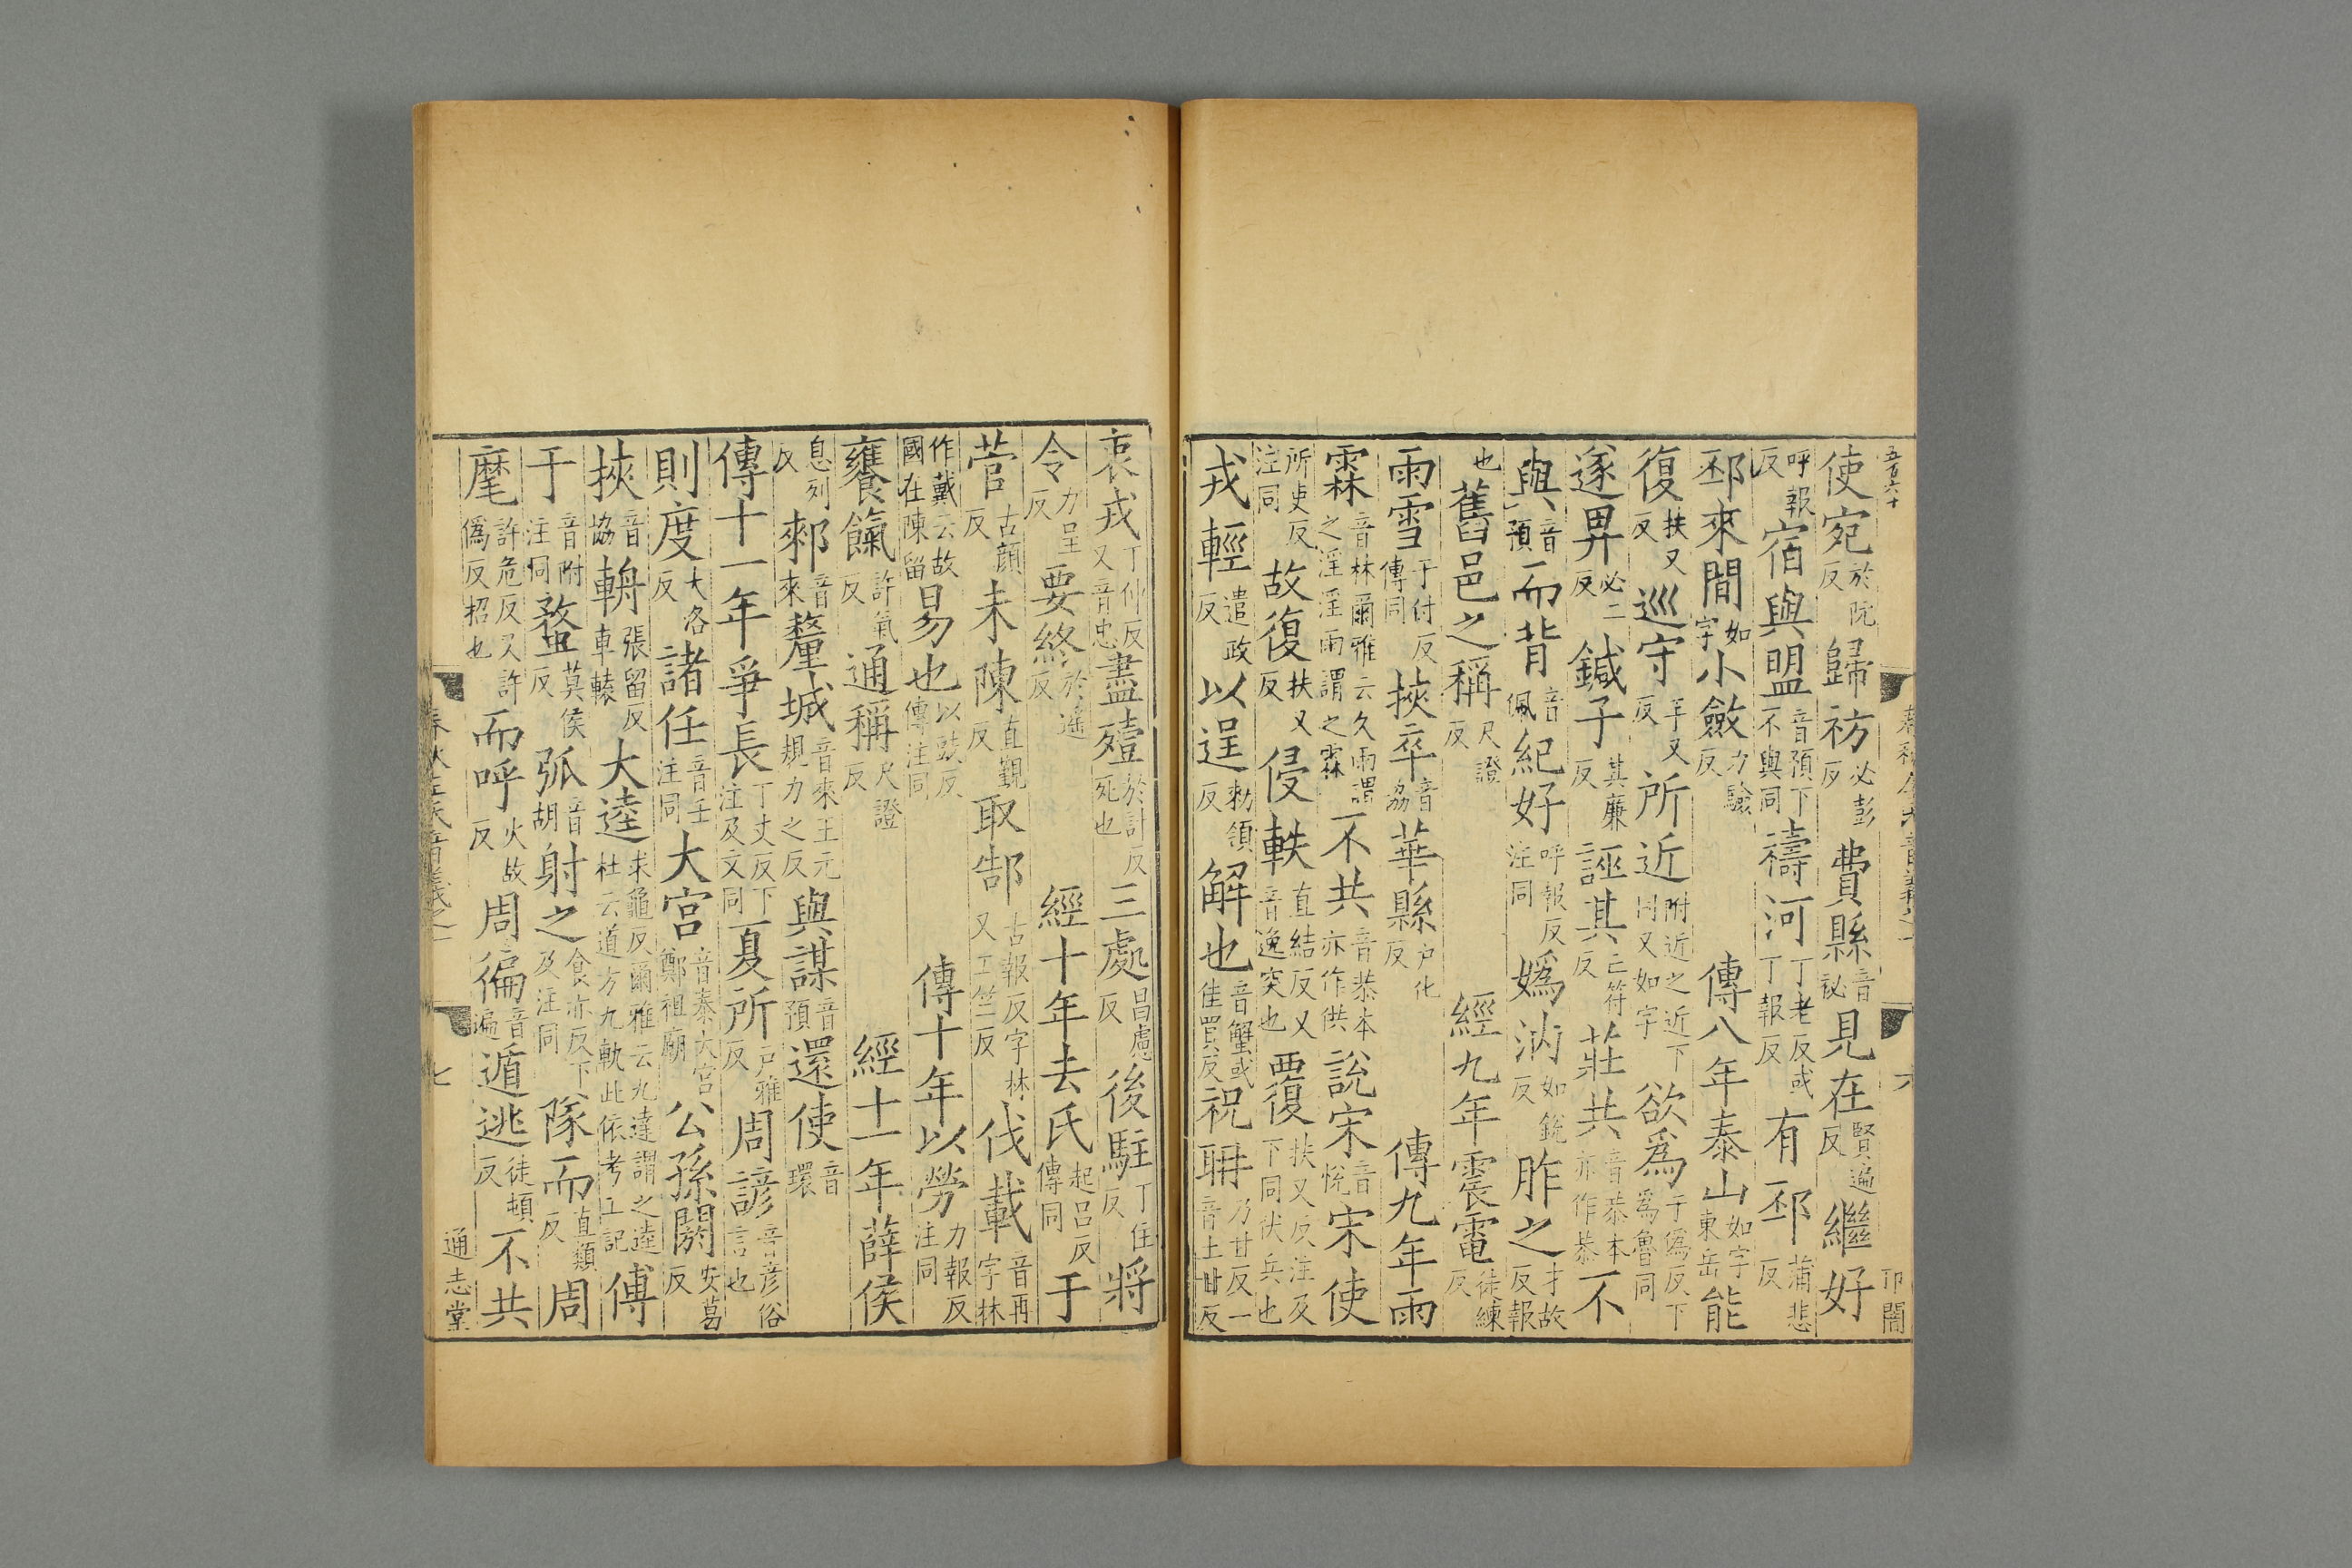 五百六十
使宛於阮反歸祊必彭反費縣音祕見在賢遍反繼好
呼報反宿與盟音預下不與同禱河丁老反或丁報反有邳蒲悲反
邳來間如字小斂力驗反傳八年泰山如字東岳能
復扶又反巡守手又反所近附近之近下同又如字欲爲于僞反下爲魯同
遂畀必二反鍼子其廉反誣其亡符反莊共音恭本亦作恭不
與音預而背音佩紀好呼報反注同嬀汭如銳反胙之才故反報
也舊邑之稱尺證反經九年震電徒練反
雨雪于付反傳同挾卒音協華縣戶化反傳九年雨
霖音林爾雅云久雨謂之淫淫雨謂之霖不共音恭本亦作供說宋音悅宋使
所吏反注同故復扶又反侵軼直結反又音逸突也覆扶又反注及下同伏兵也
戎輕遣政反以逞勑領反解也音蟹或佳買反祝聃乃甘反一音土甘反
六
卬闓
衷戎丁仲反又音忠盡殪於計反死也三處昌慮反後駐丁住反將
令力呈反要終於遙反經十年去氏起呂反傳同于
菅古顏反未陳直覲反取郜古報反字林又工竺反伐載音再字林
作戴云故國在陳留易也以豉反傳注同傳十年以勞力報反注同
饔餼許氣反通稱尺證反經十一年薛侯
息列反郲音來犛城音來王元規力之反與謀音預還使音環
傳十一年爭長丁丈反下注及文同夏所戶雅反周諺音彥俗言也
則度大洛反諸任音壬注同大宮音泰大宮鄭祖廟公孫閼安葛反
挾音協輈張留反車轅大逵求龜反爾雅云九達謂之逵杜云道方九軌此依考工記傅
于音附注同蝥莫侯反弧音胡射之食亦反下及注同隊而直類反周
麾許危反又許僞反招也而呼火故反周徧音遍遁逃徒頓反不共
春秋左氏音義之一
七
通志堂